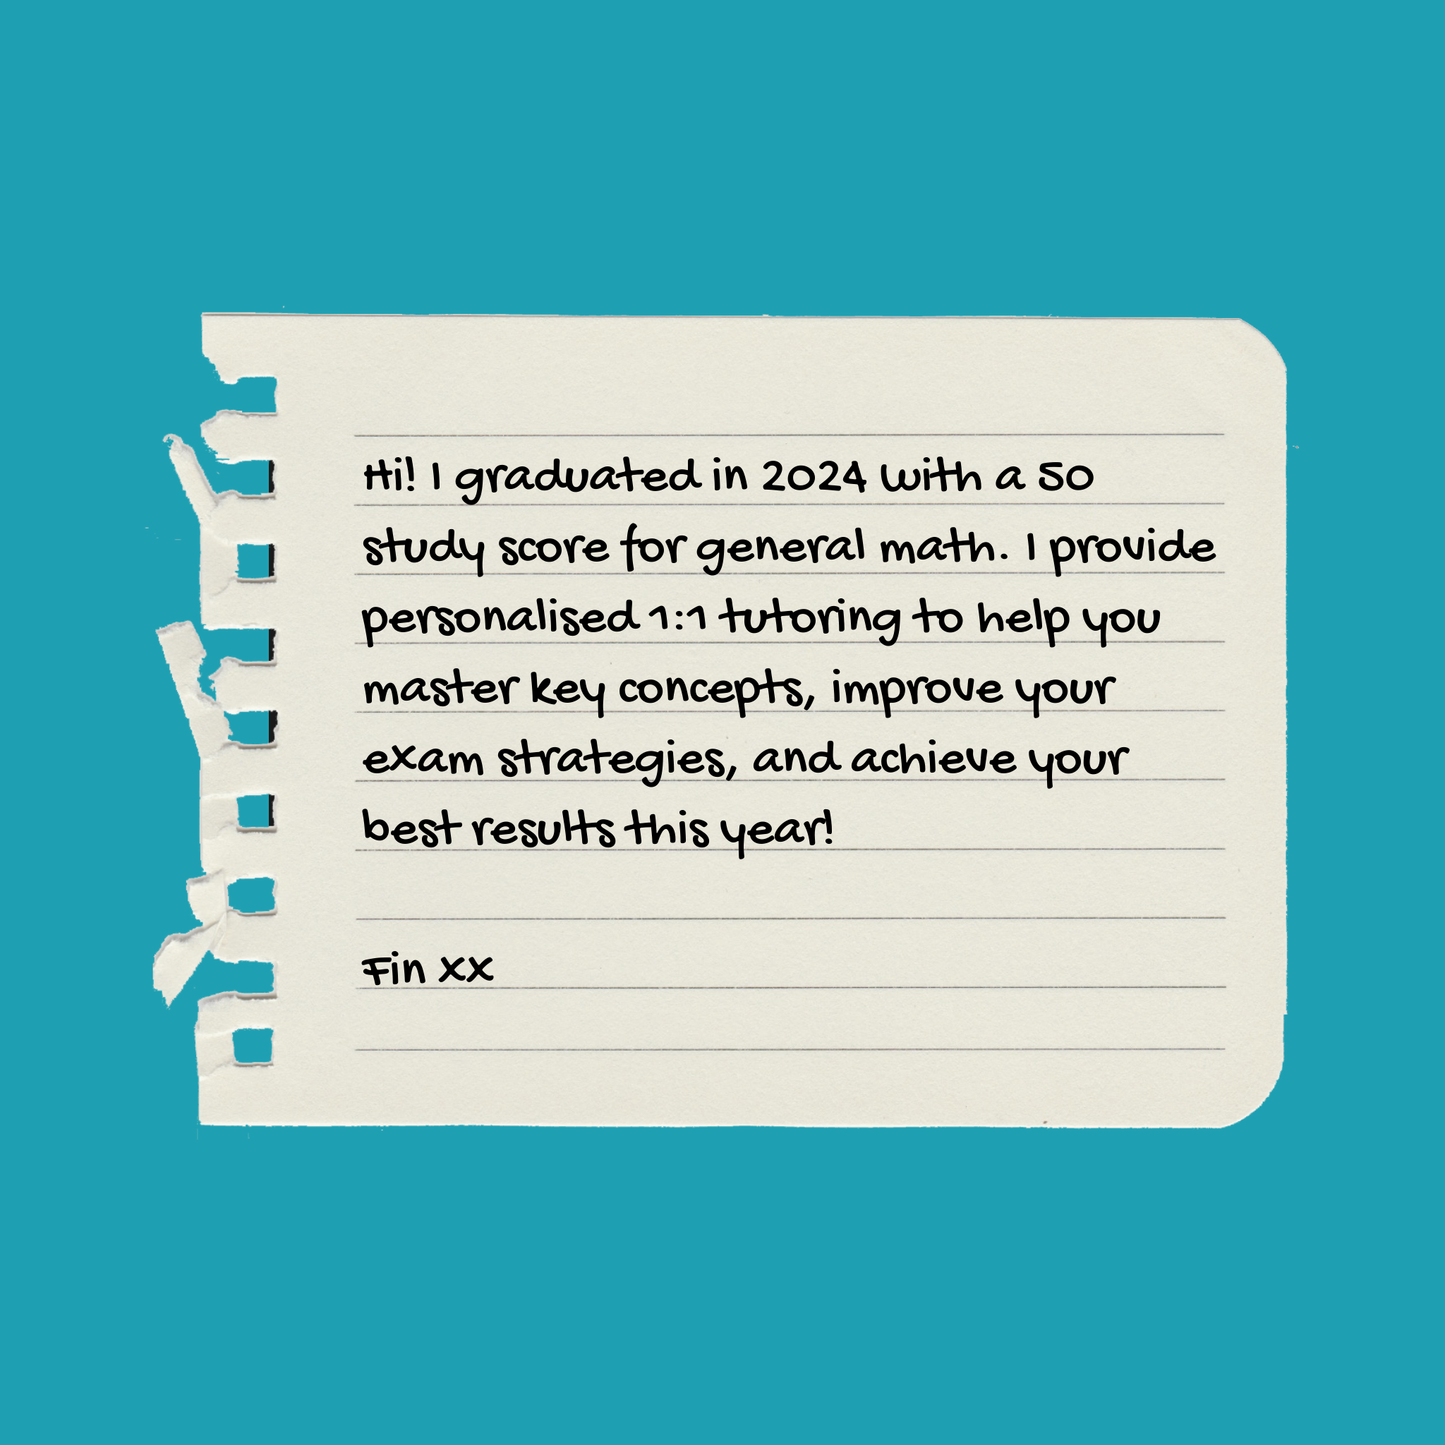 Hi! I graduated in 2024 with a 50
study score for general math. I provide
personalised 1:1 tutoring to help you
master key concepts, improve your
exam strategies, and achieve your
best results this year!
Fin xx